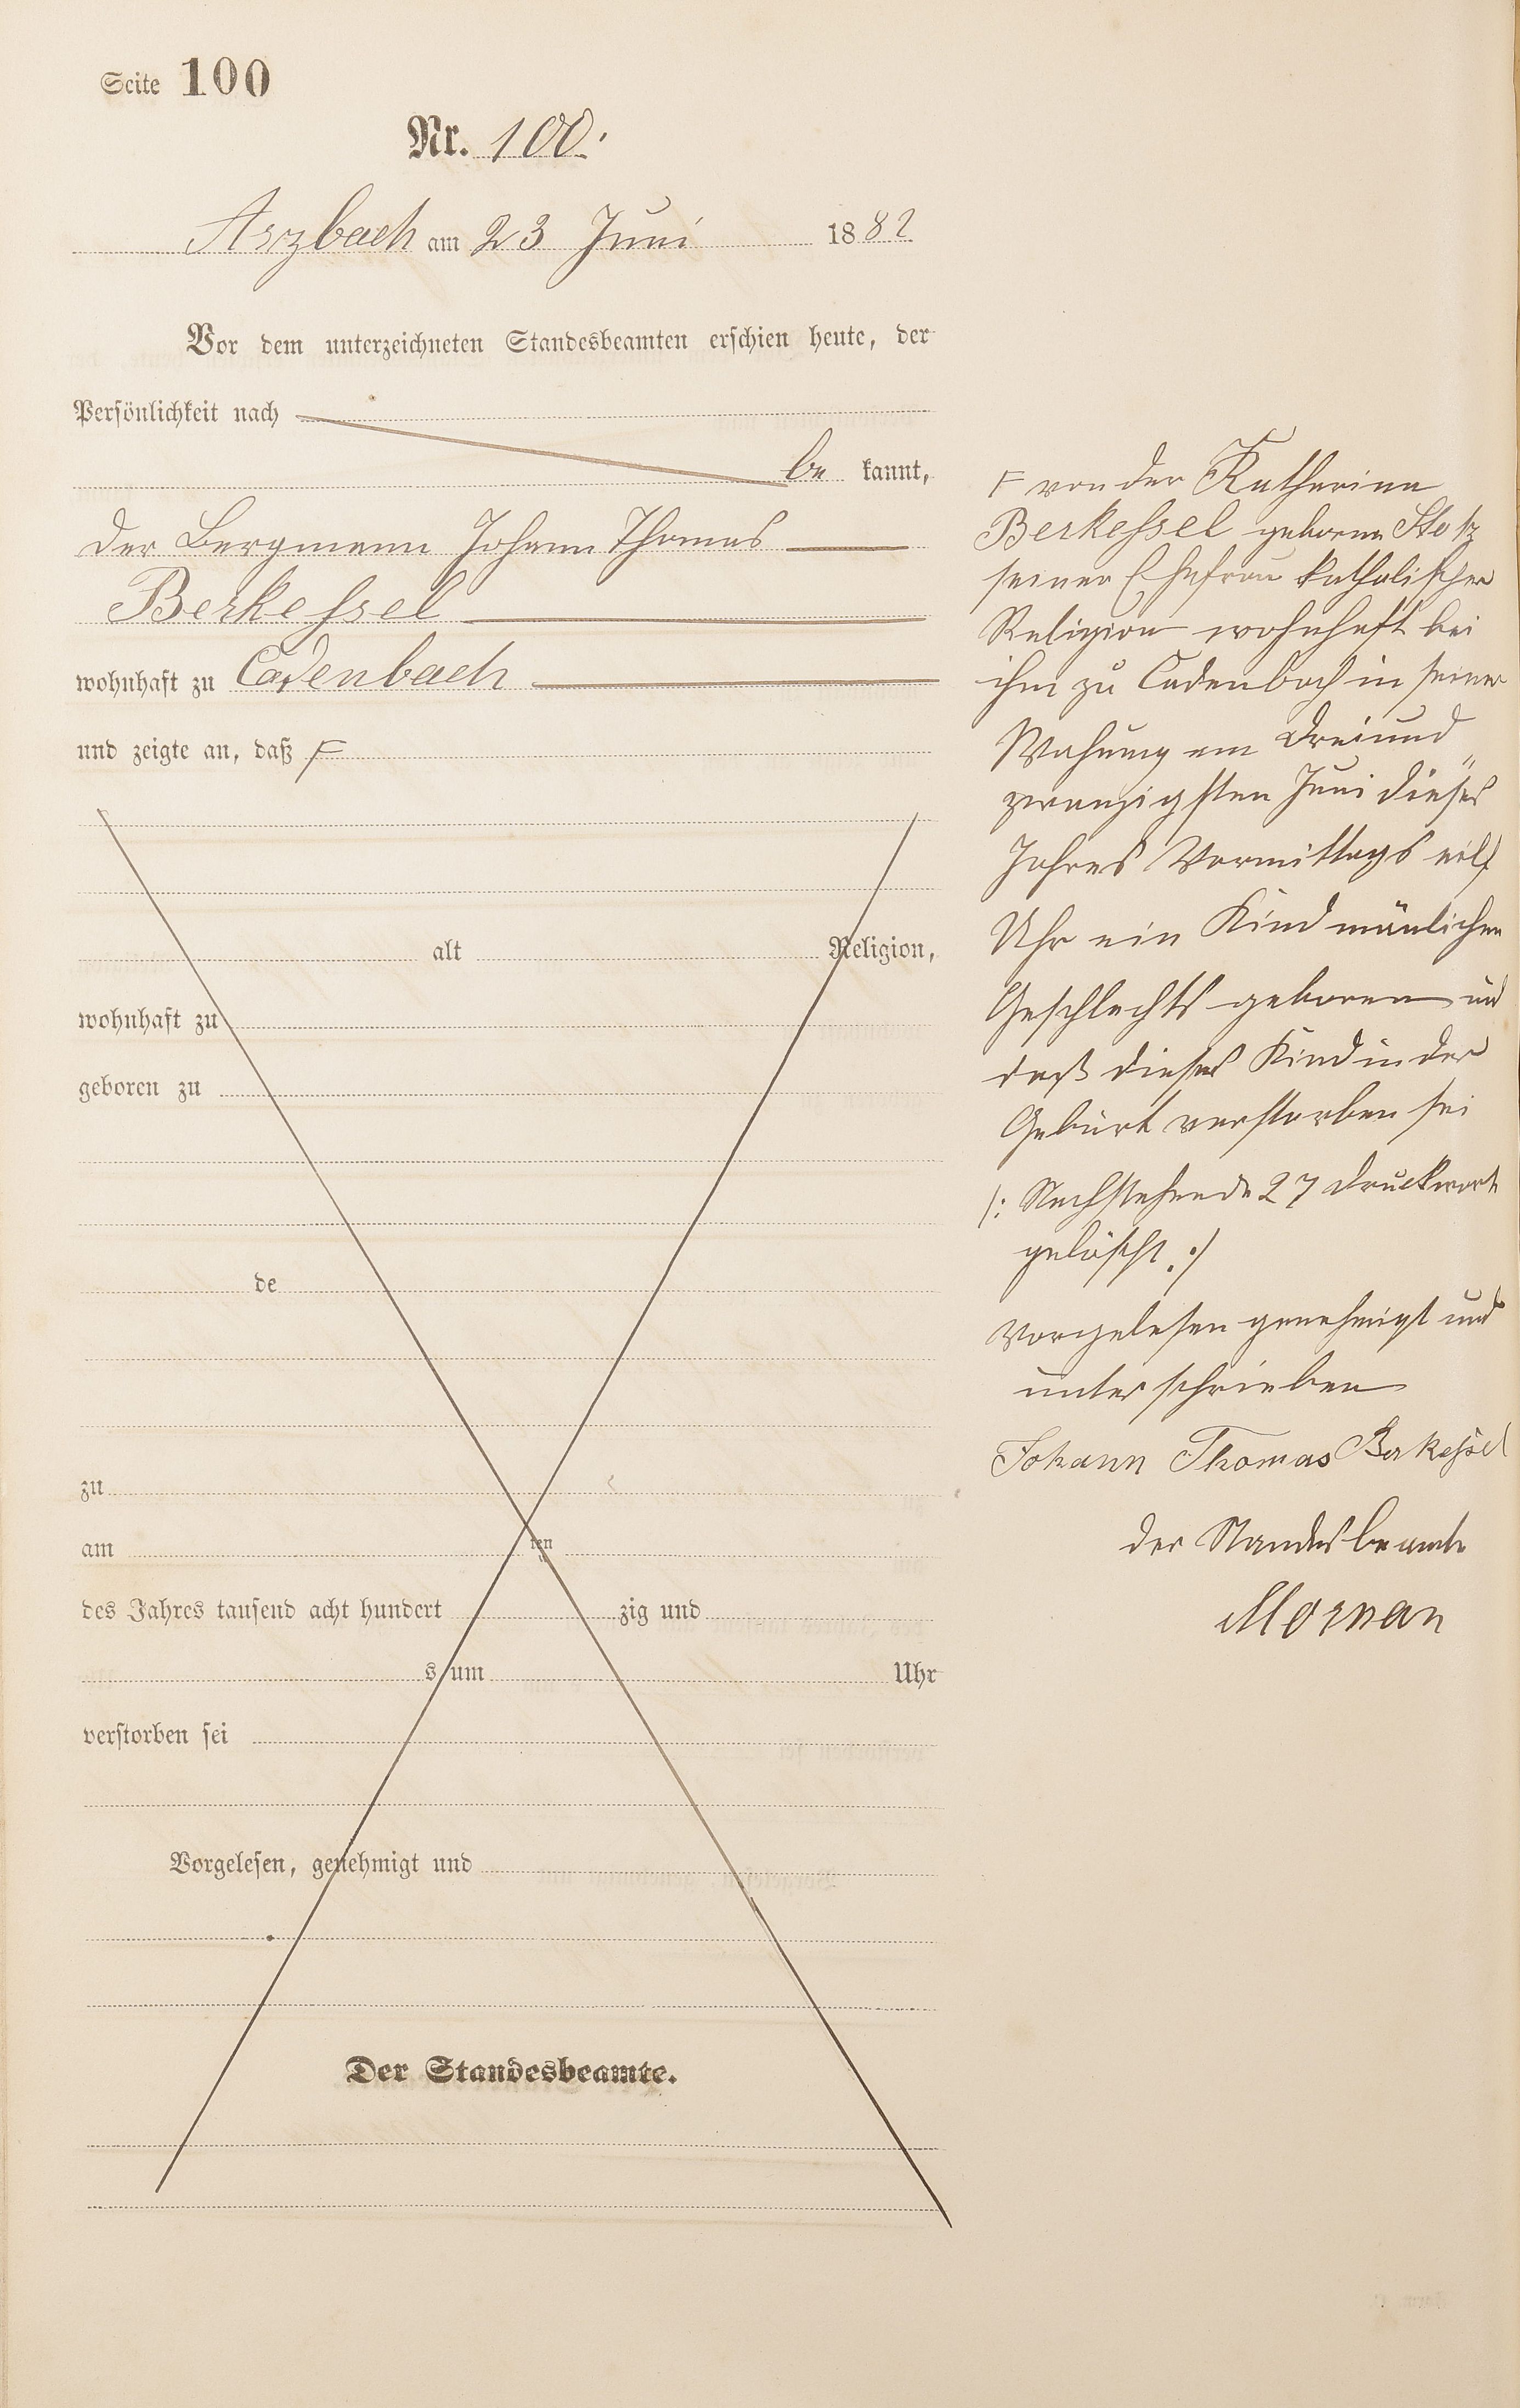 Seite 100
Nr. 100.
Arzbach am 23 Juni 1882
Vor dem unterzeichneten Standesbeamten erschien heute, der
Persönlichkeit nach
be kannt,
der Bergmann Johann Thomas
Berkessel
wohnhaft zu Cadenbach
und zeigte an, daß F
alt Religion,
wohnhaft zu
geboren zu
de
zu
am ten
des Jahres tausend acht hundert zig und
s um Uhr
verstorben sei
Vorgelesen, genehmigt und
Der Standesbeamte.
F von der Katharina
Berkessel geborene Stotz
seiner Ehefrau katholischer
Religion wohnhaft bei
ihm zu Cadenbach in seiner
Wohnung am Dreiund
zwanzigsten Juni dieses
Jahres Vormittags eilf
Uhr ein Kind mänlichen
Geschlechts geboren und
daß dieses Kind in der
Geburt verstorben sei
/: Nachstehende 27 Druckworte
gelöscht. :/
Vorgelesen genehmigt und
unterschrieben
Johann Thomas Berkessel
der Standesbeamte